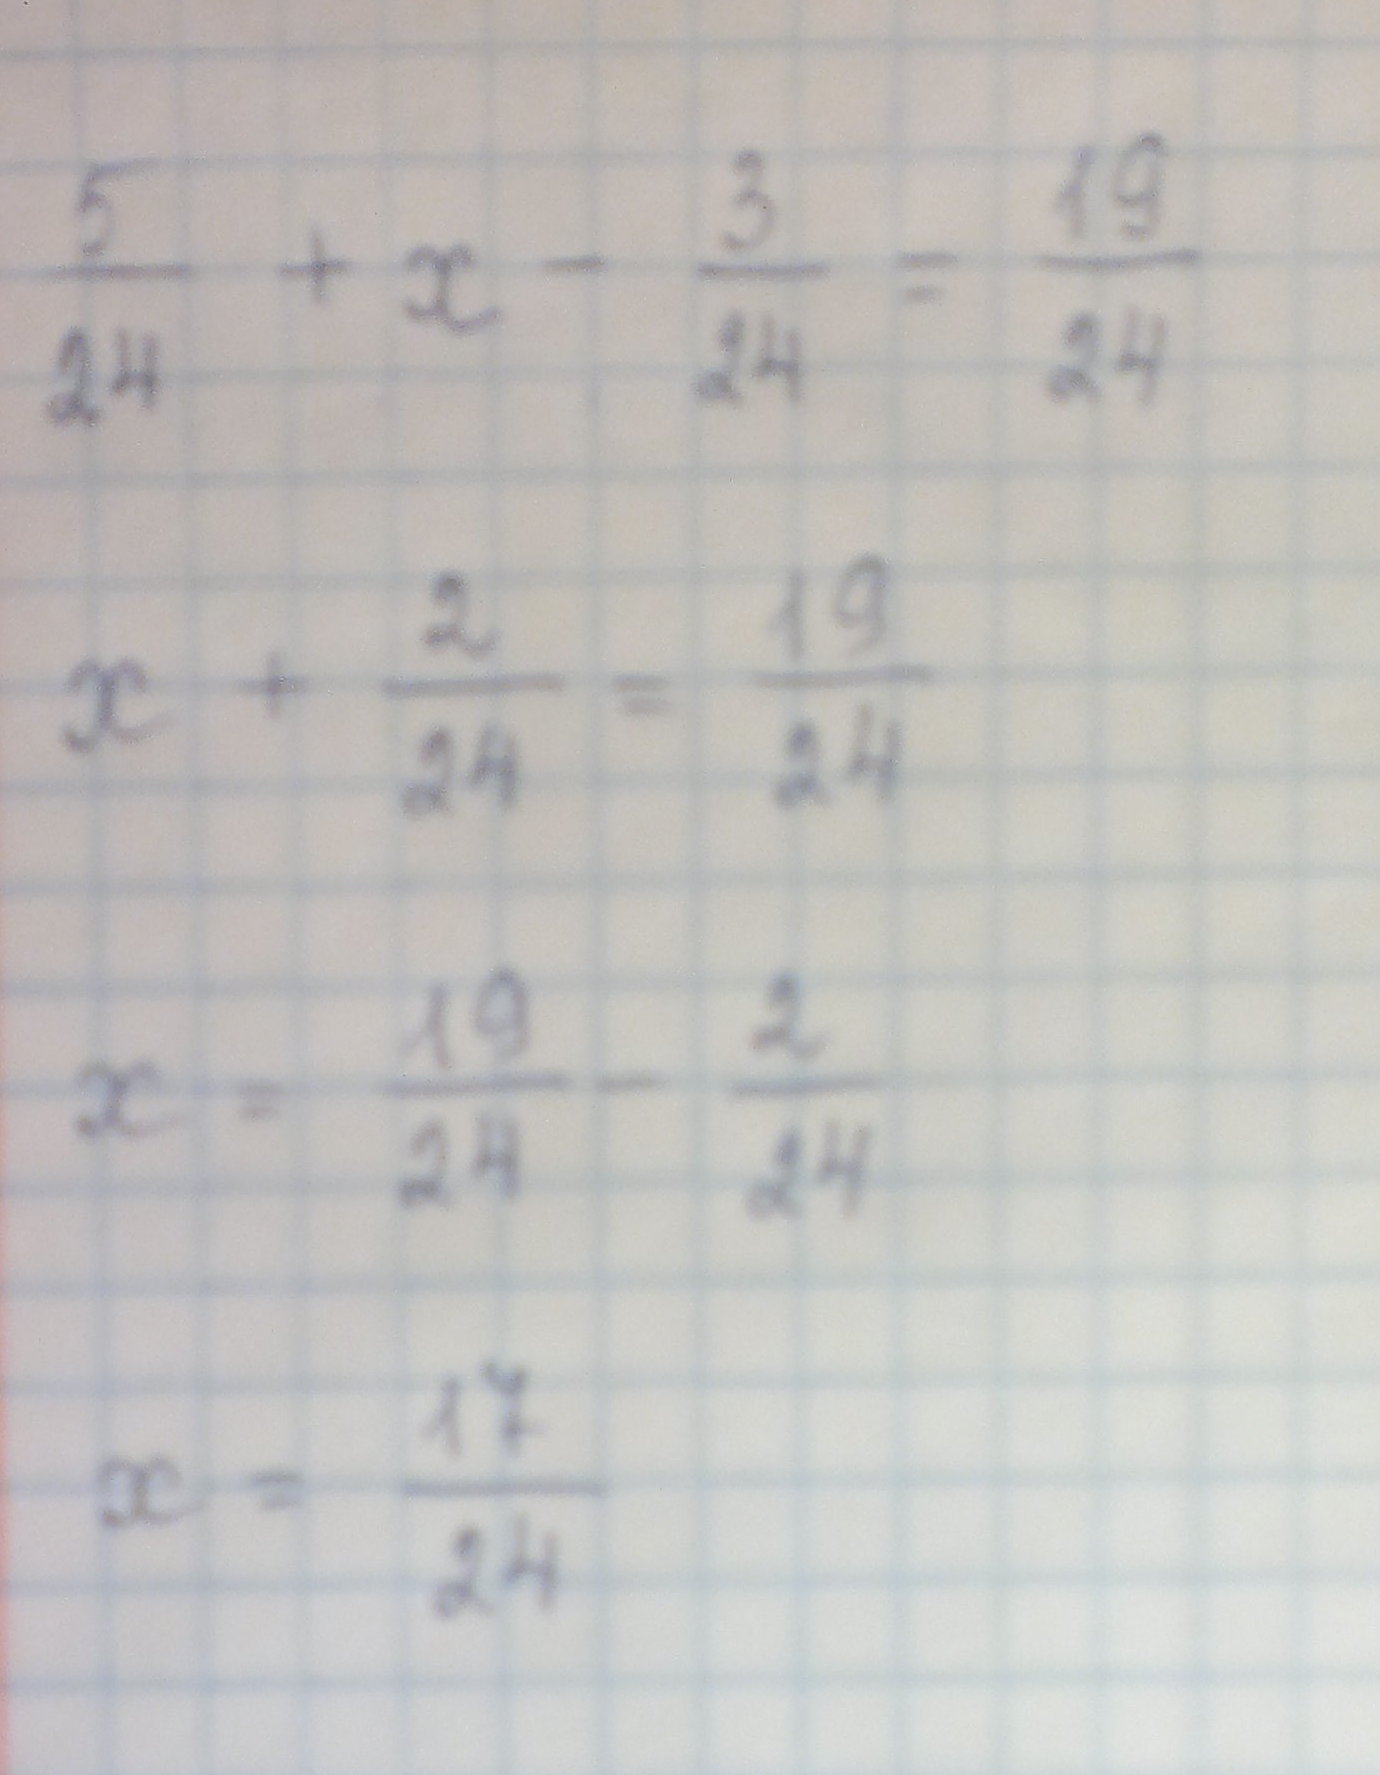 5/24 + x - 3/24 = 19/24
x + 2/24 = 19/24
x = 19/24 - 2/24
x = 17/24